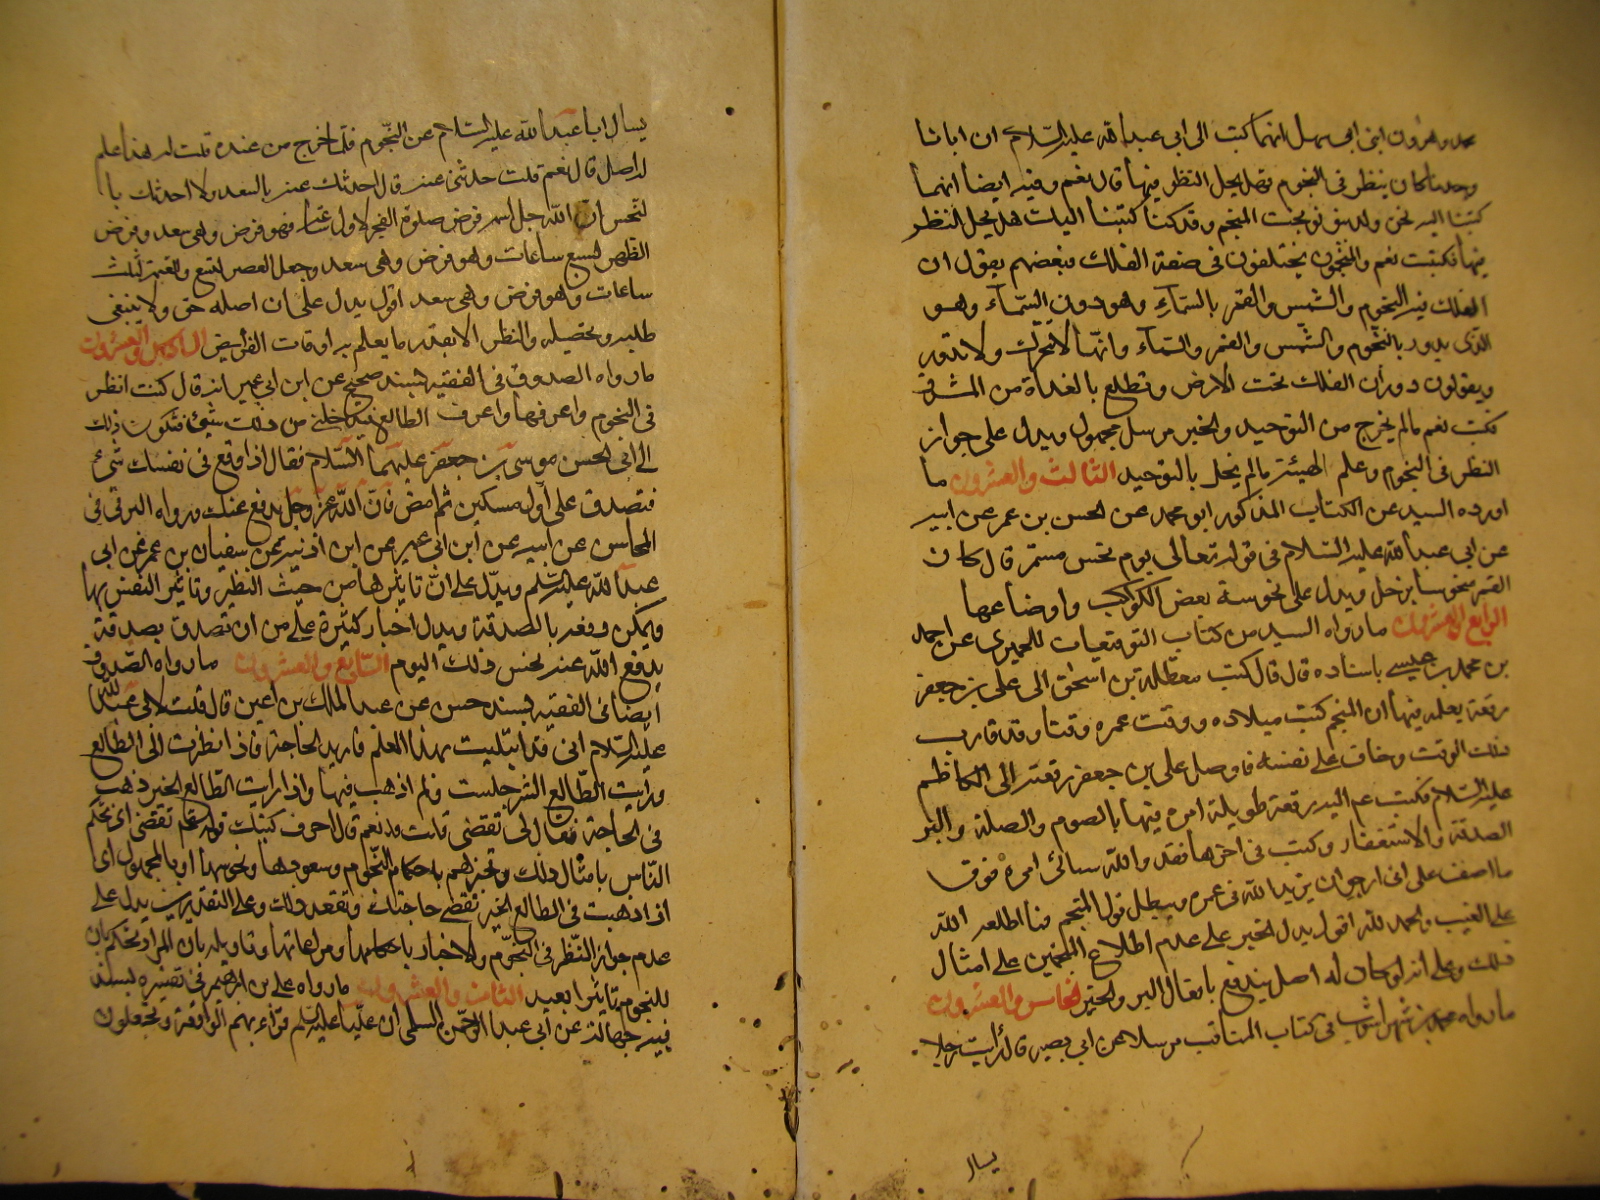 محمد وهرون ابنى ابى سهل انهما كتبا الى ابى عبدالله عليه السلام ان ابانا
وجدنا كان ينظر فى النجوم فهل يحل النظر فيها قال نعم وفيه ايضا انهما
كتبنا اليه نحن ولد بنو نوبخت المنجم وقد كنا كتبنا اليك هل يحل النظر
فيها فكتبت نعم والمنجمون يختلفون فى صفة الفلك فبعضهم يقول ان
الفلك فيه النجوم والشمس والقمر بالسماء وهو دون السماء وهو
الذى يدور بالنجوم والشمس والقمر والسماء وانها لا تتحرك ولا تدور
ويقولون دوران الفلك تحت الارض وتطلع بالغداة من المشرق
فكتب نعم ما لم يخرج من التوحيد والخبر مرسل مجهول ويدل على جواز
النظر فى النجوم وعلم الهيئة ما لم يخل بالتوحيد الثالث والعشرون ما
اورده السيد عن الكتاب المذكور ابو محمد عن الحسن بن عمر عن ابيه
عن ابى عبدالله عليه السلام فى قوله تعالى يوم نحس مستمر قال كان
القمر منحوسا بزحل ويدل على نحوسة بعض الكواكب واوضاعها
الرابع والعشرون ما رواه السيد من كتاب التوقيعات للحميرى عن احمد
بن محمد بن عيسى باسناده قال قال كتب معقلة بن اسحق الى على بن جعفر
رقعة يعلمه فيها ان المنجم كتب ميلاده ووقت عمره وقتا وقد قارب
ذلك الوقت وخاف على نفسه فاوصل على بن جعفر رقعته الى الكاظم
عليه السلام فكتب عم اليه رقعة طويلة امره فيها بالصوم والصلة والبر
الصدقة والاستغفار وكتب فى اخرها فقد والله سائنى امره فوق
ما اصف على انى ارجو ان يزيد الله فى عمره ويبطل قول المنجم فما اطلعه الله
على الغيب والحمد لله اقول يدل الخبر على عدم اطلاع المنجمين على امثال
ذلك وعلى انه لو كان له اصل يندفع بافعال البر والخير الخامس والعشرون
ما رواه محمد بن شهراشوب فى كتاب المناقب مرسلا عن ابى بصير قال رايت رجلا
يسال
يسال ابا عبدالله عليه السلام عن النجوم فلما خرج من عنده قلت له هذا علم
له اصل قال نعم قلت حدثنى عنه قال احدثك عنه بالسعد ولا احدثك با
لنحس ان الله جل اسمه فرض صلوة الفجر لاول ساعة فهو فرض وهى سعد وفرض
الظهر لسبع ساعات وهو فرض وهى سعد وجعل العصر لتسع والمغرب لثلث
ساعات وهو فرض وهى سعد اقول يدل على ان اصله حق ولا ينبغى
طلبه وتحصيله والنظر الا بقدر ما يعلم به اوقات الفرايض السادس والعشرون
ما رواه الصدوق فى الفقيه بسند صحيح عن ابن ابى عمير انه قال كنت انظر
فى النجوم واعرفها واعرف الطالع فيدخلنى من ذلك شئ فشكوت ذلك
الى ابى الحسن موسى بن جعفر عليهما السلام فقال اذا وقع فى نفسك شئ
فتصدق على اول مسكين ثم امض فان الله عز وجل يدفع عنك ورواه البرقى فى
المحاسن عن ابيه عن ابن ابى عمير عن ابن اذينه عن سفيان بن عمر عن ابى
عبدالله عليه السلم ويدل على ان تاثيرها من حيث النظير وتاثير النفس بها
ويمكن دفعه بالصدقة ويدل اخبار كثيرة على من ان تصدق بصدقة
يدفع الله عنه نحس ذلك اليوم السابع والعشرون ما رواه الصدوق
ايضا فى الفقيه بسند حسن عن عبد الملك بن اعين قال قلت لابى عبدالله
عليه السلام انى قد ابتليت بهذا العلم فاريد الحاجة فاذا نظرت الى الطالع
ورايت الطالع الشر جلست ولم اذهب فيها واذا رايت الطالع الخير ذهبت
فى الحاجة فقال لى تقضى قلت نعم قال احرق كتبك قوله عم تقضى اى تحكم
الناس بامثال ذلك وتخبرهم باحكام النجوم وسعودها ونحوسها او بالمجهول اى
اذا ذهبت فى الطالع الخير تقضى حاجتك وتعتقد ذلك وعلى التقديرين يدل على
عدم جواز النظر فى النجوم والاخبار باحكامها ومراعاتها وتاويله بان المراد تحكم بان
للنجوم تاثيرا بعيد الثامن والعشرون ما رواه على بن ابرهيم فى تفسيره بسند
فيه جهالة عن ابى عبدالرحمن السلمى ان عليا عليه السلم قرا بهم الواقعة وتجعلون